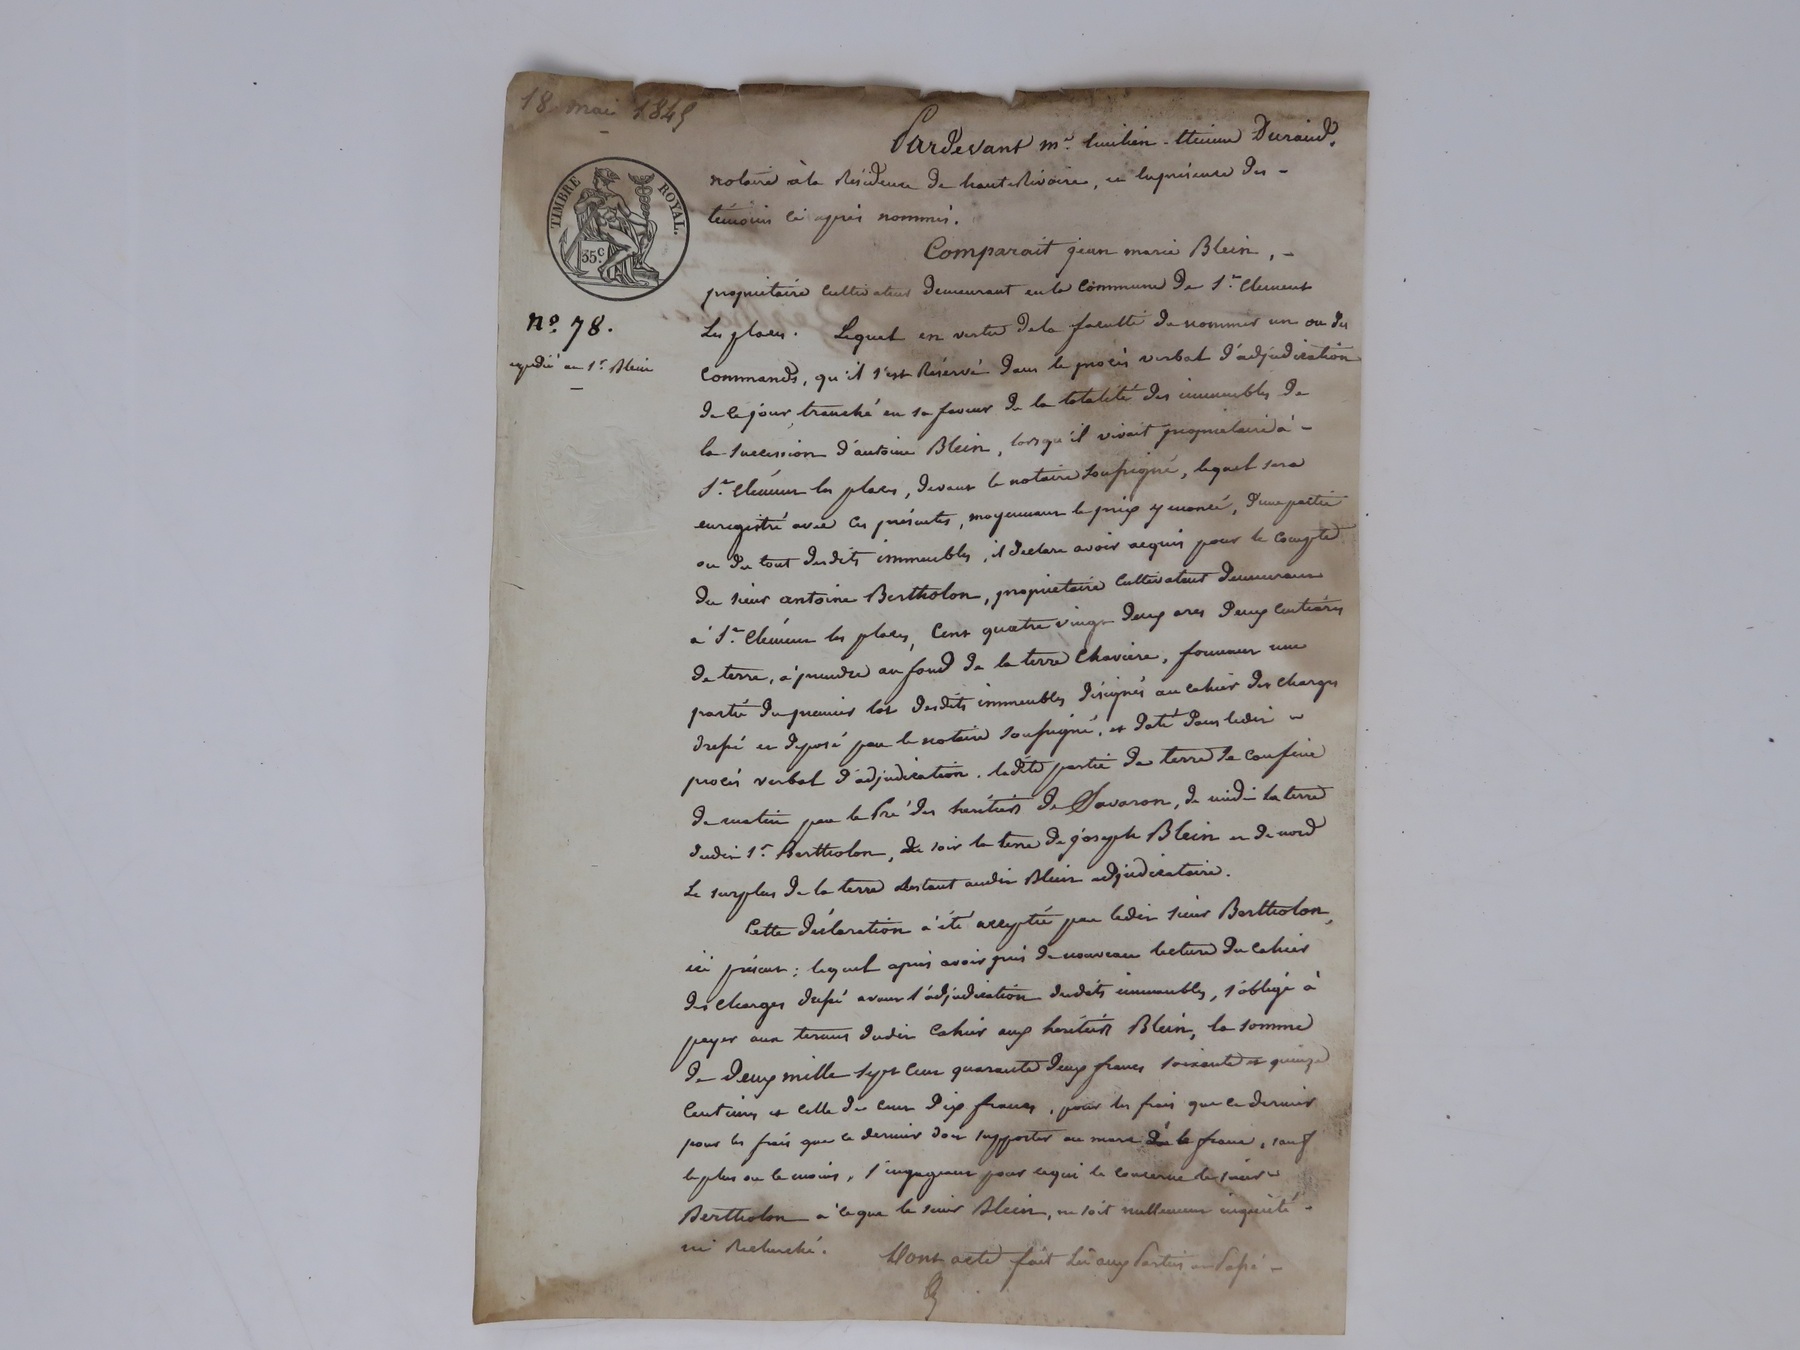 18 mai 1845
Pardevant me. Durand,
notaire à la Résidence de hauteRivoire, en la présence des -
témoins ci après nommés.
TIMBRE ROYAL.
35 c.
Comparait jean marie Blein, -
propriétaire cultivateur demeurant en la commune De St. Clement
Les places. Lequel en vertu de la faculté de nommer un ou des
no. 78.
expedié au sr. Blein
commands, qu'il s'est Réservé dans le procès verbal d'adjudication
de ce jour, tranché en sa faveur de la totalité des immeubles de
la succession d'antoine Blein, lorsqu'il vivait propriétaire à -
St. Clément les places, devant le notaire soussigné, lequel sera
enregistré avec ces présentes, moyennant le prix y enoncé, d'une partie
ou du tout desdits immeubles, il declare avoir acquis pour le compte
du sieur antoine Bertholon, propriétaire cultivateur demeurant
à St. Clément les places, cent quatre vingt deux ares deux centiares
de terre, à prendre au fond de la terre Chaviere, formant une
partie du premier lot desdits immeubles désignés au cahier des charges
dressé et déposé par le notaire soussigné, et daté dans ledit
procès verbal d'adjudication. ladite partie de terre se confine
de matin par le Pré des heritiers de Savaron, de midi la terre
dudit sr. Bertholon, de soir la terre de joseph Blein et de nord
Le surplus de la terre Restant audit Blein adjudicataire.
Cette déclaration à été acceptée par ledit sieur Bertholon,
ici présent; lequel après avoir pris de nouveau lecture du cahier
des charges dressé avant l'adjudication desdits immeubles, s'oblige à
payer aux termes dudit cahier aux heritiers Blein, la somme
de deux mille sept cent quarante deux francs soixante et quinze
centimes et celle de cent dix francs, pour les frais que ce dernier
pour les frais que ce dernier doit supporter au marc le franc, sauf
le plus ou le moins, s'engageant pour ce qui le concerne le sieur
Bertholon à ce que le sieur Blein, ne soit nullement inquiété -
ni Recherché. Dont acte fait Lu aux Parties et Passé -